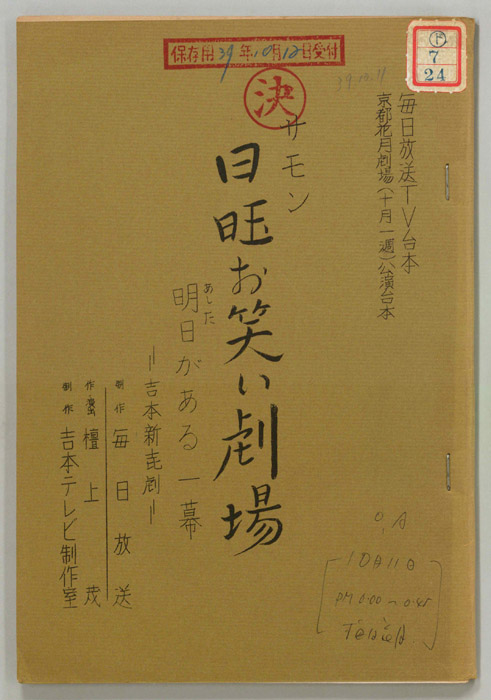 保存用39年10月12日受付
決
ド
7
24
39.10.11
毎日放送TV台本
京都花月劇場(十月一週)公演台本
サモン
日旺お笑い劇場
明日がある 一幕
あした
=吉本新喜劇=
制作 毎日放送
作・演出 檀上茂
制作 吉本テレビ制作室
O.A
10月11日
PM 0:00〜0:45